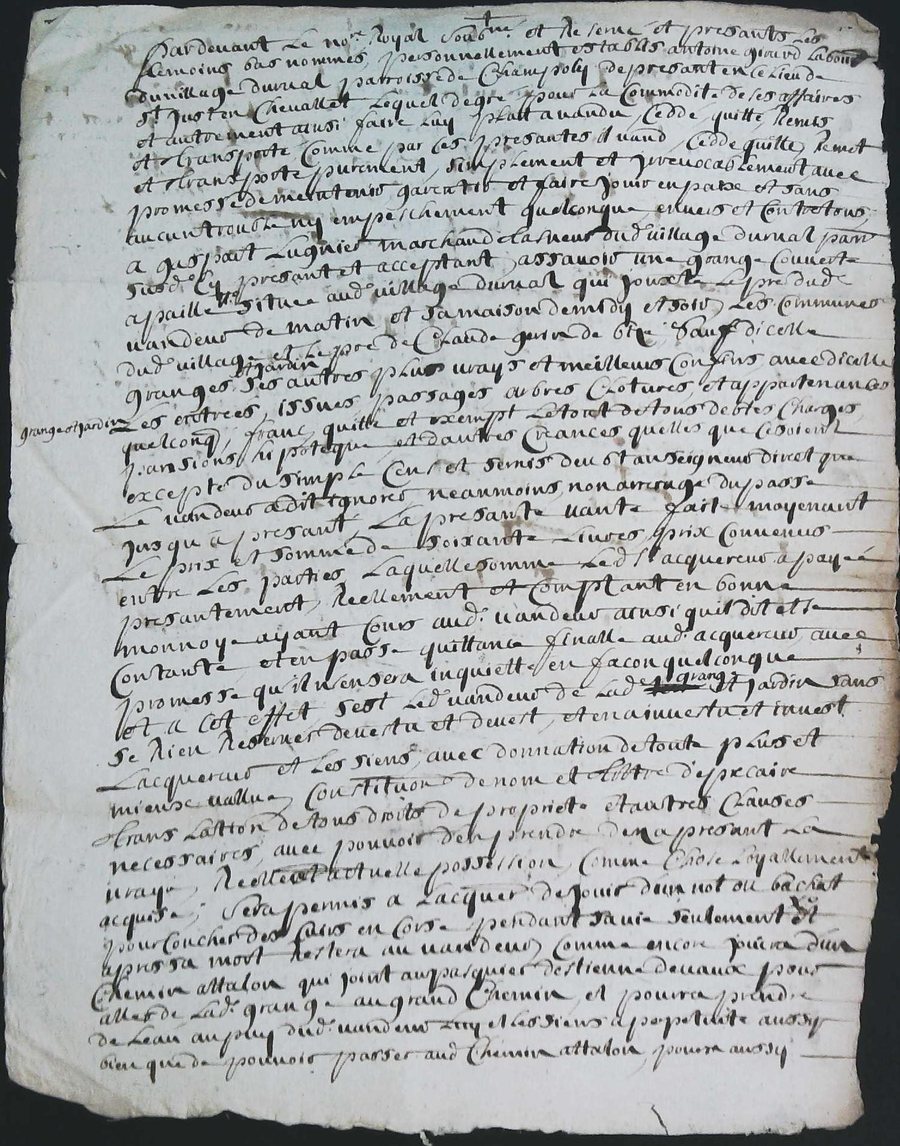 Pardevant Le no.re Royal Soub.ne et Reservé et presants Les
temoins bas nommes, personnellement establis antoine girard Labour
du village durval parroisse de Champoly de presant en ce lieu de
st Just en Chevallet Lequel de gre pour La Commodite de ses affaires
et autrement ainsi faire luy plait a vandu, Cedde, quitte, Remis
et transporte Comme par ces presantes il vand, Cedde quitte, Remet
et transporte purement, simplement et irrevocablement avec
promesse de maintenir garentir et faire jouir en paix et sans
aucun trouble ny empeschement quelconque envers et Contre tous
a gaspart Lugnier marchand tasneur dud. village durval parr
susd. Cy presant et acceptant, assavoir une grange Couverte
a paille située aud. village durval qui jouxte Le pre dud.
vandeur de matin et sa maison de midy et soir, Les Communes
dud. village et Le pre de Claude gerin de bize, sauf dicelle
et jardin
grange ses autres plus vrays et meilleurs Confins avec dicelle
grange et jardin
Les entrées, issues, passages, arbres Clotures, et appartenances
quelconq, franc, quitte et exempt Le tout de tous debtes Charges,
pansions, hipoteque, et dautres Creances quelles que Ce soient
excepte du simple Cens et servis deubt au seigneur direct que
Le vandeur a dit ignorer neaumoins non arrerage du passe
Jusqu a presant, La presante vante fait moyenant
Le prix et somme de soixante Livres, prix Convenus
entre Les parties Laquelle somme Led. acquereur a payée
presantement, Reellement et Comptant en bonne
monnoye ayant Cours aud. vandeur ainsi quil dit etre
Contante et en passe quittance finalle aud. acquereur avec
promesse qu'il n'en sera inquietté en facon quelconque
et a cet effet sest Led. vandeur de Lad. grange et jardin sans
se Rien Reserver devestu et devest, et en a investu et invest
Lacquereur et Les siens, avec donnation de toute plus et
mieux vallue, Constitution de nom et tittre de precaire
translation de tous droits de propriete et autres Clauses
necessaires, avec pouvoir den prendre dena presant La
vraye, Reelle et actuelle possession, Comme Chose loyallement
acquise, sera permis a Lacquer. de jouir dun not ou bachat
pour Coucher des Cuirs en Corse pendant sa vie seulement et
apres sa mort Restera au vandeur, Comme encore jouira dun
Chemin attalon qui joint au pasquier destienne devaux pour
aller de Lad. grange au grand Chemin, et pourra prendre
de Leau au puy dud. vandeur Luy et Les siens a perpetuite aussy
bien que de pouvoir passer aud. Chemin attalon, pourra aussy